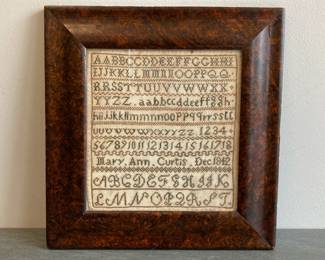 AABBCCDDEEFFGGHHI
IJJKKLLMMNNOOPPQQ
RRSSTTUUVVWWXX
YYZZ. aabbccddeeffggh
hiijjkkllmmnnooppqqrrsstt
uuvvwwxxyyzz 1234
56789101112131415161718
Mary, Ann, Curtis, Dec 1842
ABCDEFGHIJK
LMNOPQRST.